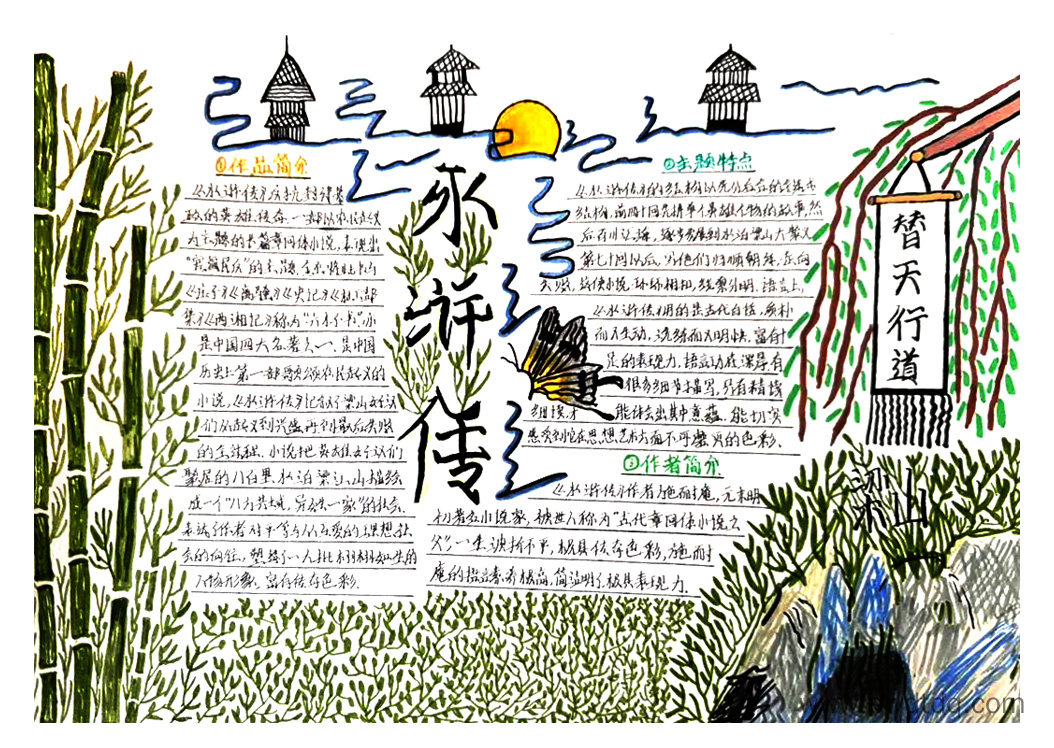 ①作品简介
《水浒传》
政的英雄传奇、一部以农民起义
为主题的长篇章回体小说,表现出
"官逼民反"的主题,
《庄子》《离骚》《史记》《杜工部
集》《西湘记》称为"六才子书",亦
是中国四大名著之一,是中国
历史上第一部歌颂农民起义的
小说,《水浒传》记叙了梁山好汉
们从起义到兴盛再到最后失败
的全过程,小说把英雄好汉们
聚居的八百里水泊梁山,描绘
成一个"八方共域,异姓一家"的社会,
表达了作者对平等与人人互爱的理想社
会的向往,塑造了一大批栩栩如生的
人物形象,富有传奇色彩.
水浒传
②主题特点
《水浒传》的结构以先分后合的
结构,前四十回先讲单个英雄人物的故事,然
后百川汇海,逐步发展到水泊梁山大聚义
第七十回以后,写他们归顺朝廷,走向
失败,这使小说环环相扣,线索分明,语言上,
《水浒传》用的是古代白话,质朴
而又生动,洗练而又明快,富有十
足的表现力,语言功底深厚,有
很多细节描写,只有精读
细读才能体会出其中意蕴,能切实
感受到它在思想艺术方面不可磨灭的色彩.
③作者简介
《水浒传》作者施耐庵,元末明
初著名小说家,被世人称为"古代章回体小说之
父",一生波折不平,极具传奇色彩,施耐
庵的语言素养极高,简洁明了极具表现力.
替天行道
梁山